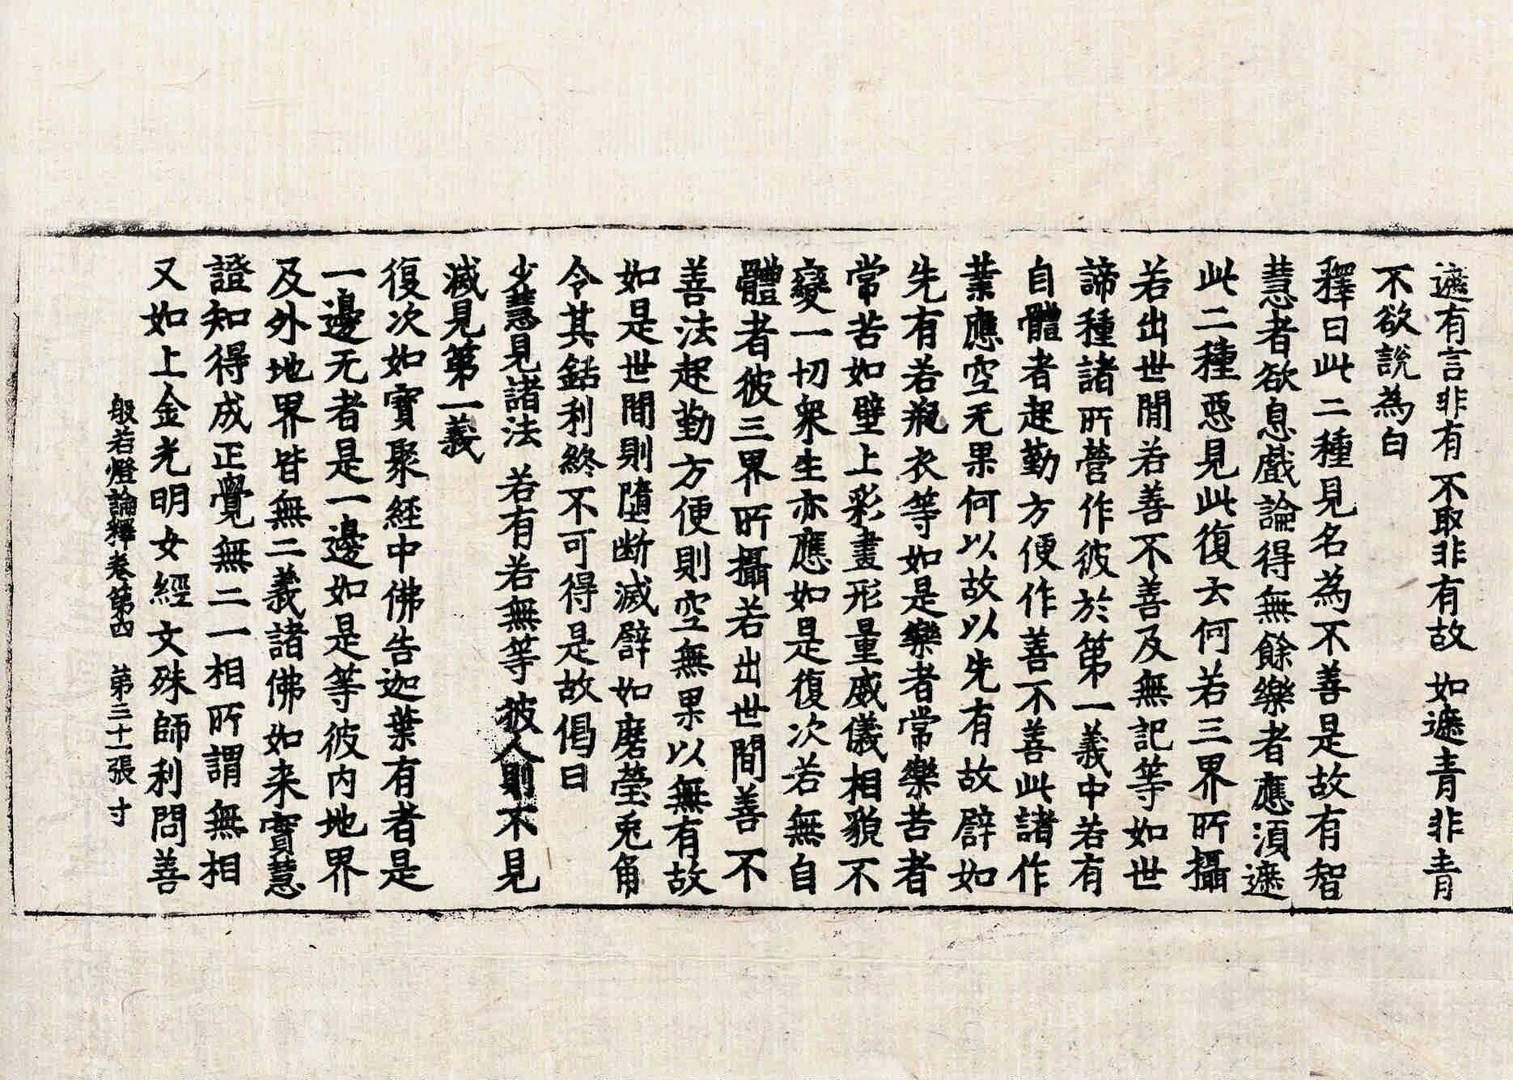 遮有言非有 不取非有故 如遮青非青
不欲說為白
釋曰此二種見名為不善是故有智
慧者欲息戲論得無餘樂者應湏遮
此二種惡見此復云何若三界所攝
若出世間若善不善及無記等如世
諦種諸所營作彼於第一義中若有
自體者起勤方便作善不善此諸作
業應空无果何以故以先有故譬如
先有若瓶衣等如是樂者常樂苦者
常苦如壁上彩畫形量威儀相貌不
變一切衆生亦應如是復次若無自
體者彼三界所攝若出世間善不
善法起勤方便則空無果以無有故
如是世間則墮断滅譬如磨瑩兎角
令其銛利終不可得是故偈曰
少慧見諸法 若有若無等 彼人則不見
滅見第一義
復次如寳聚經中佛告迦葉有者是
一邊无者是一邊如是等彼内地界
及外地界皆無二義諸佛如来實慧
證知得成正覺無二一相所謂無相
又如上金光明女經文殊師利問善
般若燈論釋卷第四 第三十一張 寸